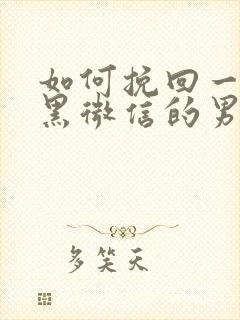 如何挽回一
黑微信的男
多笑天